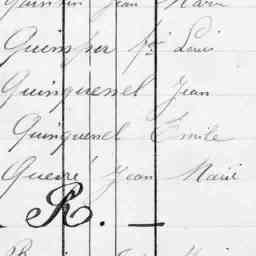 Jean Marie
Quimper fçs Louis
Quinquenel Jean
Quinquenel Émile
Queuré Jean Marie
R. —